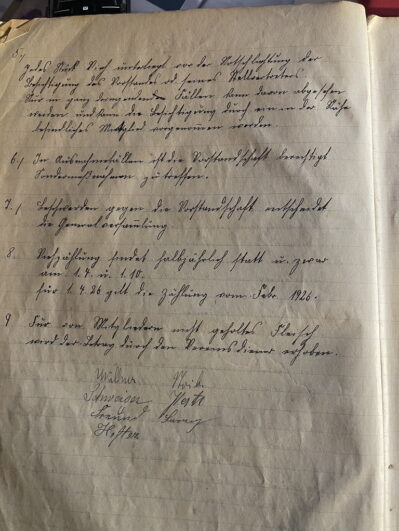 5./
Jedes Stück Vieh unterliegt vor der Notschlachtung der
Besichtigung des Vorstandes od. seines Stellvertreters.
Nur in ganz dringenden Fällen kann davon abgesehen
werden und kann die Besichtigung durch ein in der Nähe
befindliches Mitglied vorgenommen werden.
6./ In Ausnahmefällen ist die Vorstandschaft berechtigt
Sondermaßnahmen zu treffen.
7./ Beschwerden gegen die Vorstandschaft entscheidet
die Generalversammlung
8. Viehzählung findet halbjährlich statt u. zwar
am 1.4. u. 1.10.
für 1.4.26 gilt die Zählung vom Febr. 1926.
9 Für von Mitgliedern nicht geholtes Fleisch
wird der Betrag durch den Vereinsdiener erhoben.
Wallner
Freund